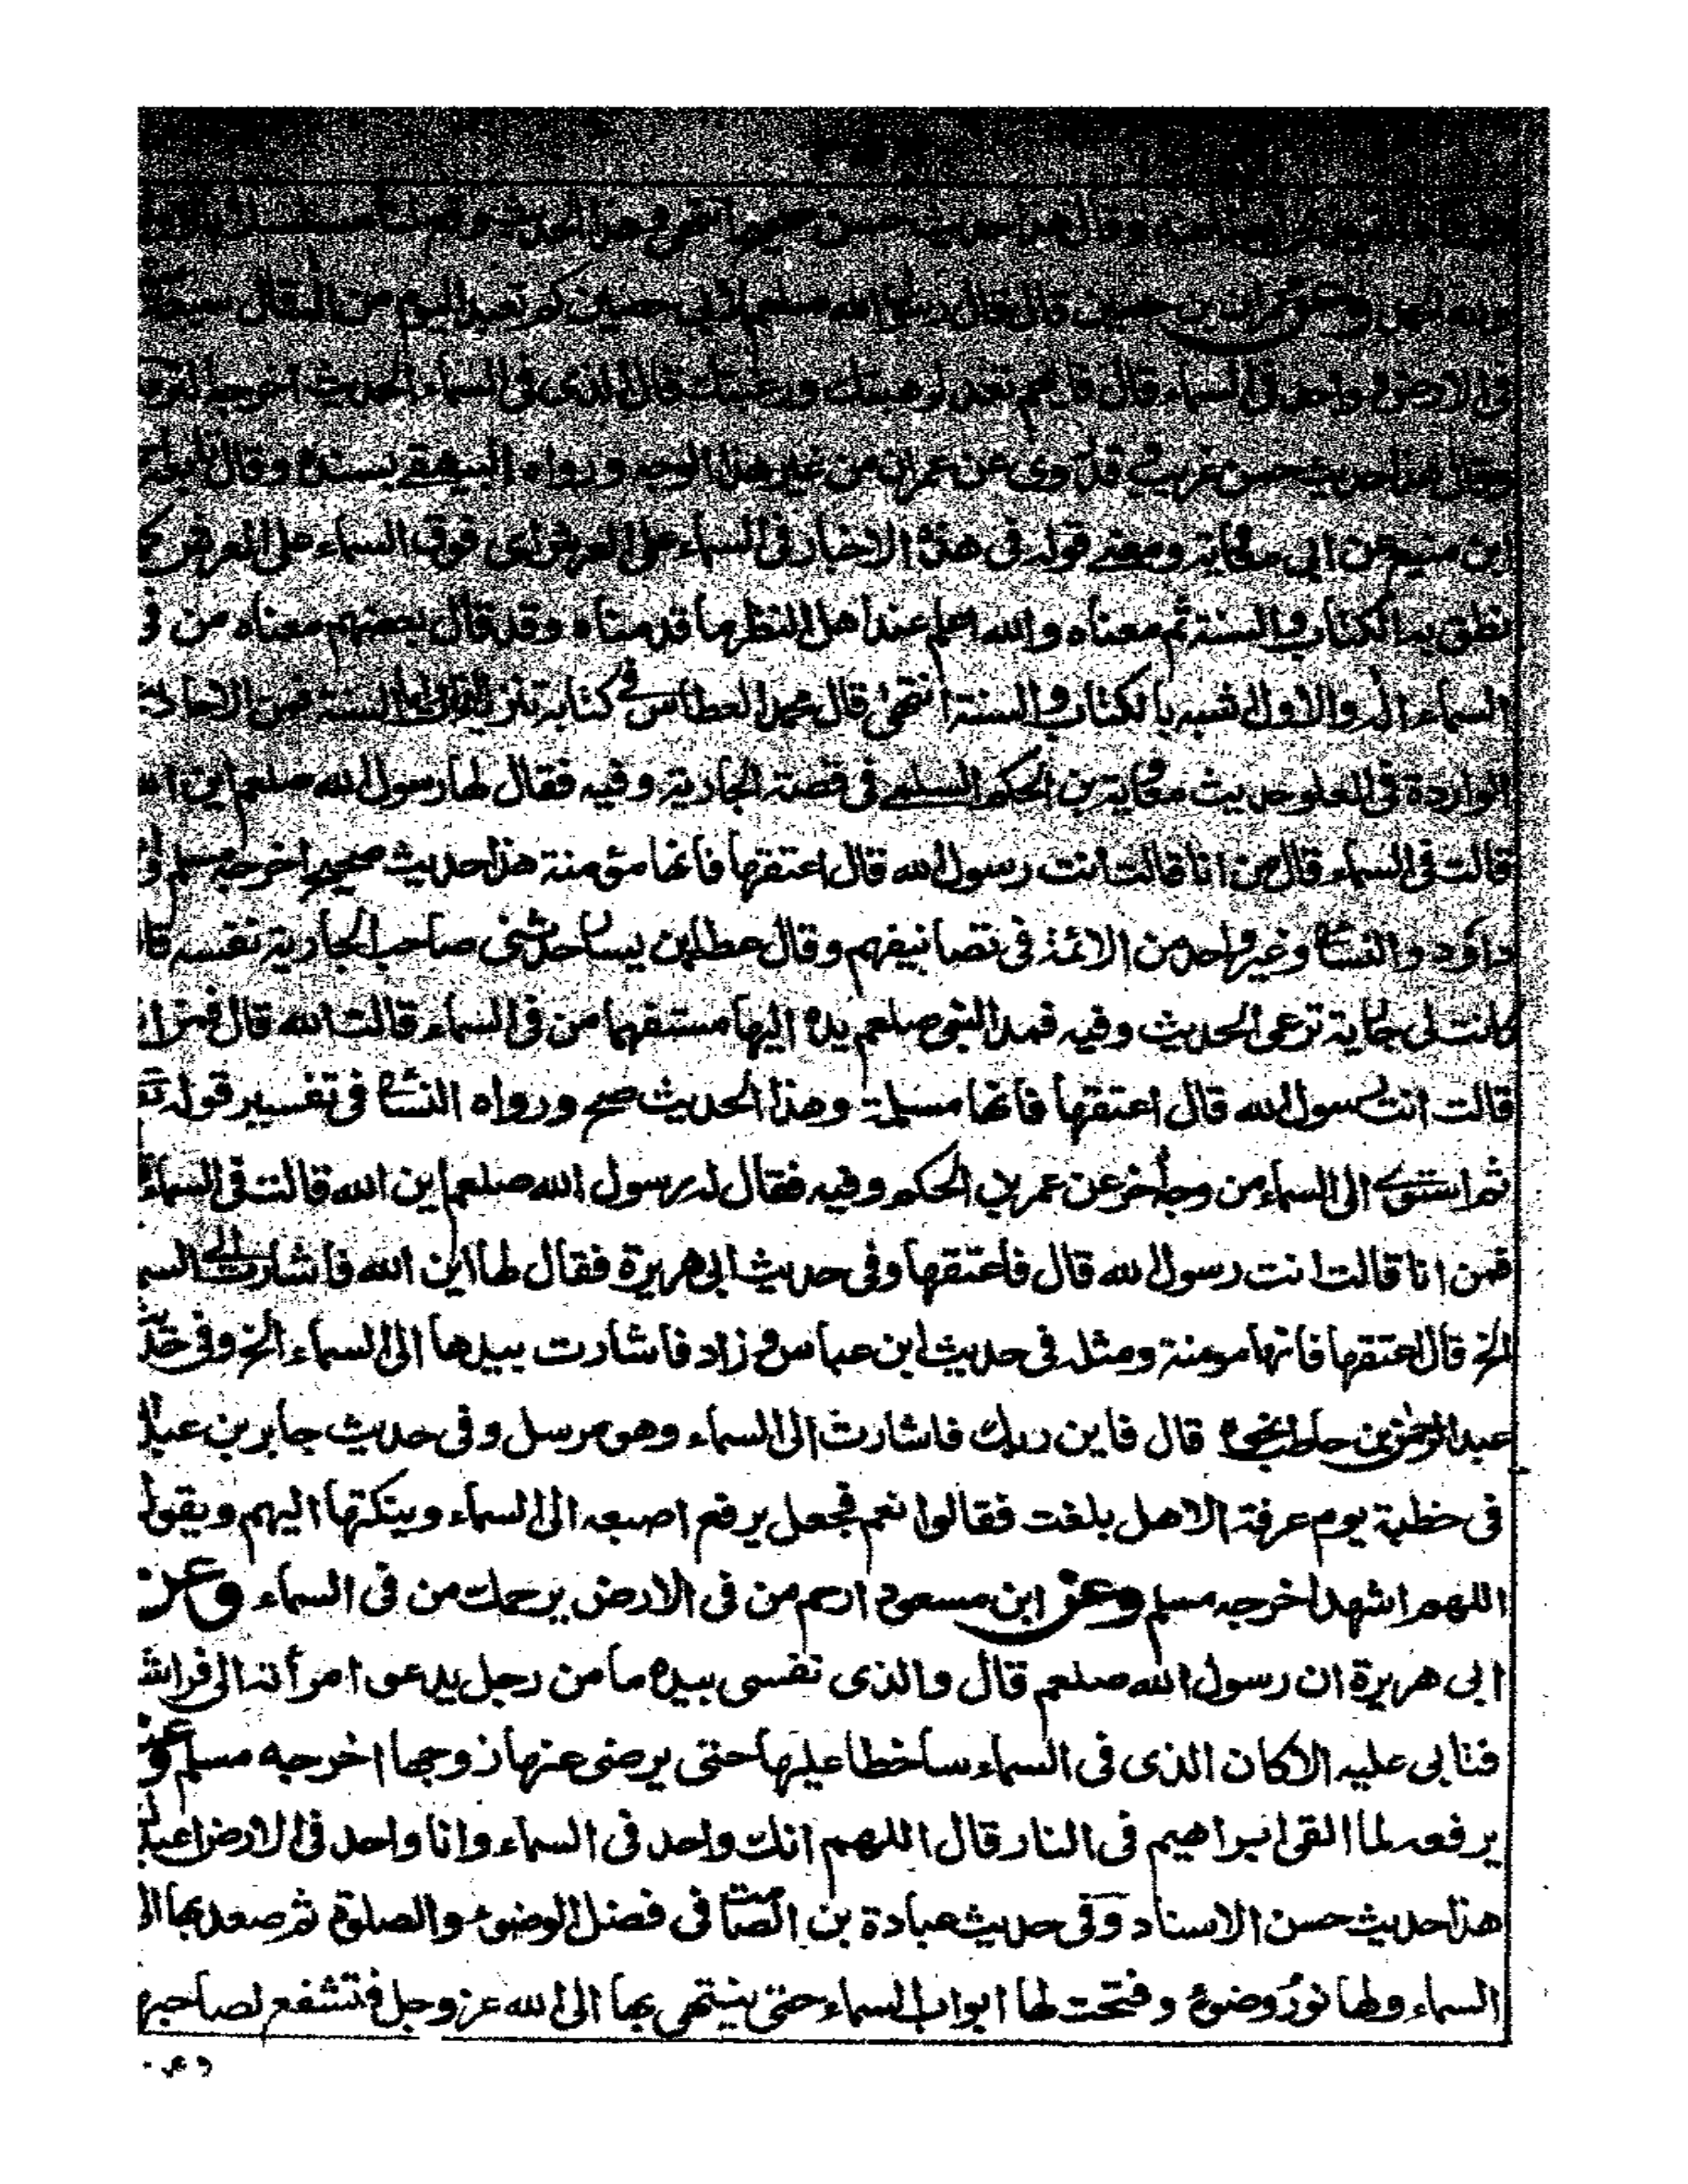 وقال هذا حديث حسن صحيح انتهى وفي هذا الحديث
وعن عمران بن حصين قال قال رسول الله صلعم لابي حصين كم تعبد اليوم من
في الارض وواحد في السماء قال فايهم تعد لرهبتك ورغبتك قال الذى فى السماء الحديث اخرجه
وقال هذا حديث حسن غريب قد روى عن عمران من غير هذا الوجه ورواه البيهقى بسنده وقال
ابن منيع عن ابي معاوية ومعنى قوله فى هذه الاخبار فى السماء على العرش اى فوق السماء على العرش كما
نطق به الكتاب والسنة ثم معناه والله اعلم عند اهل النظر ما قدمناه وقد قال بعضهم معناه من فى
السماء اله والاول اشبه بالكتاب والسنة انتهى قال محمد العطاس فى كتابه تنزيه السنة فمن الاحاديث
الواردة فى العلو حديث معاوية بن الحكم السلمى فى قصة الجارية وفيه فقال لها رسول الله صلعم اين الله
قالت فى السماء قال من انا قالت انت رسول الله قال اعتقها فانها مؤمنة هذا حديث صحيح اخرجه مسلم وا
داؤد والنسائى وغير واحد من الائمة فى تصانيفهم وقال عطا بن يسار حدثنى صاحب الجارية نفسه قا
كانت لى جارية ترعى الحديث وفيه فمد النبى صلعم يده اليها مستفهما من فى السماء قالت الله قال فمن ا
قالت انت رسول الله قال اعتقها فانها مسلمة وهذا الحديث صح ورواه النسائى فى تفسير قوله تع
ثم استوى الى السماء من وجه اخر عن عمر بن الحكم وفيه فقال له رسول الله صلعم اين الله قالت فى السماء
فمن انا قالت انت رسول الله قال فاعتقها وفى حديث ابى هريرة فقال لها اين الله فاشارت الى السم
الخ قال اعتقها فانها مومنة ومثله فى حديث ابن عباس وزاد فاشارت بيدها الى السماء الخ وفى حديث
عبد الرحمن بن حاطب نحوه قال فاين ربك فاشارت الى السماء وهو مرسل وفى حديث جابر بن عبد ا
فى خطبة يوم عرفة الا هل بلغت فقالوا نعم فجعل يرفع اصبعه الى السماء وينكتها اليهم ويقول
اللهم اشهد اخرجه مسلم وعن ابن مسعود ارحم من فى الارض يرحمك من فى السماء وعن
ابى هريرة ان رسول الله صلعم قال والذى نفسى بيده ما من رجل يدعو امرأته الى فراشه
فتابى عليه الا كان الذى فى السماء ساخطا عليها حتى يرضى عنها زوجها اخرجه مسلم وعنه
يرفعه لما القى ابراهيم فى النار قال اللهم انك واحد فى السماء وانا واحد فى الارض اعبد
هذا حديث حسن الاسناد وفى حديث عبادة بن الصامت فى فضل الوضوء والصلوة ثم صعد بها ال
السماء ولها نور وضوء وفتحت لها ابواب السماء حتى ينتهى بها الى الله عز وجل فتشفع لصاحبها